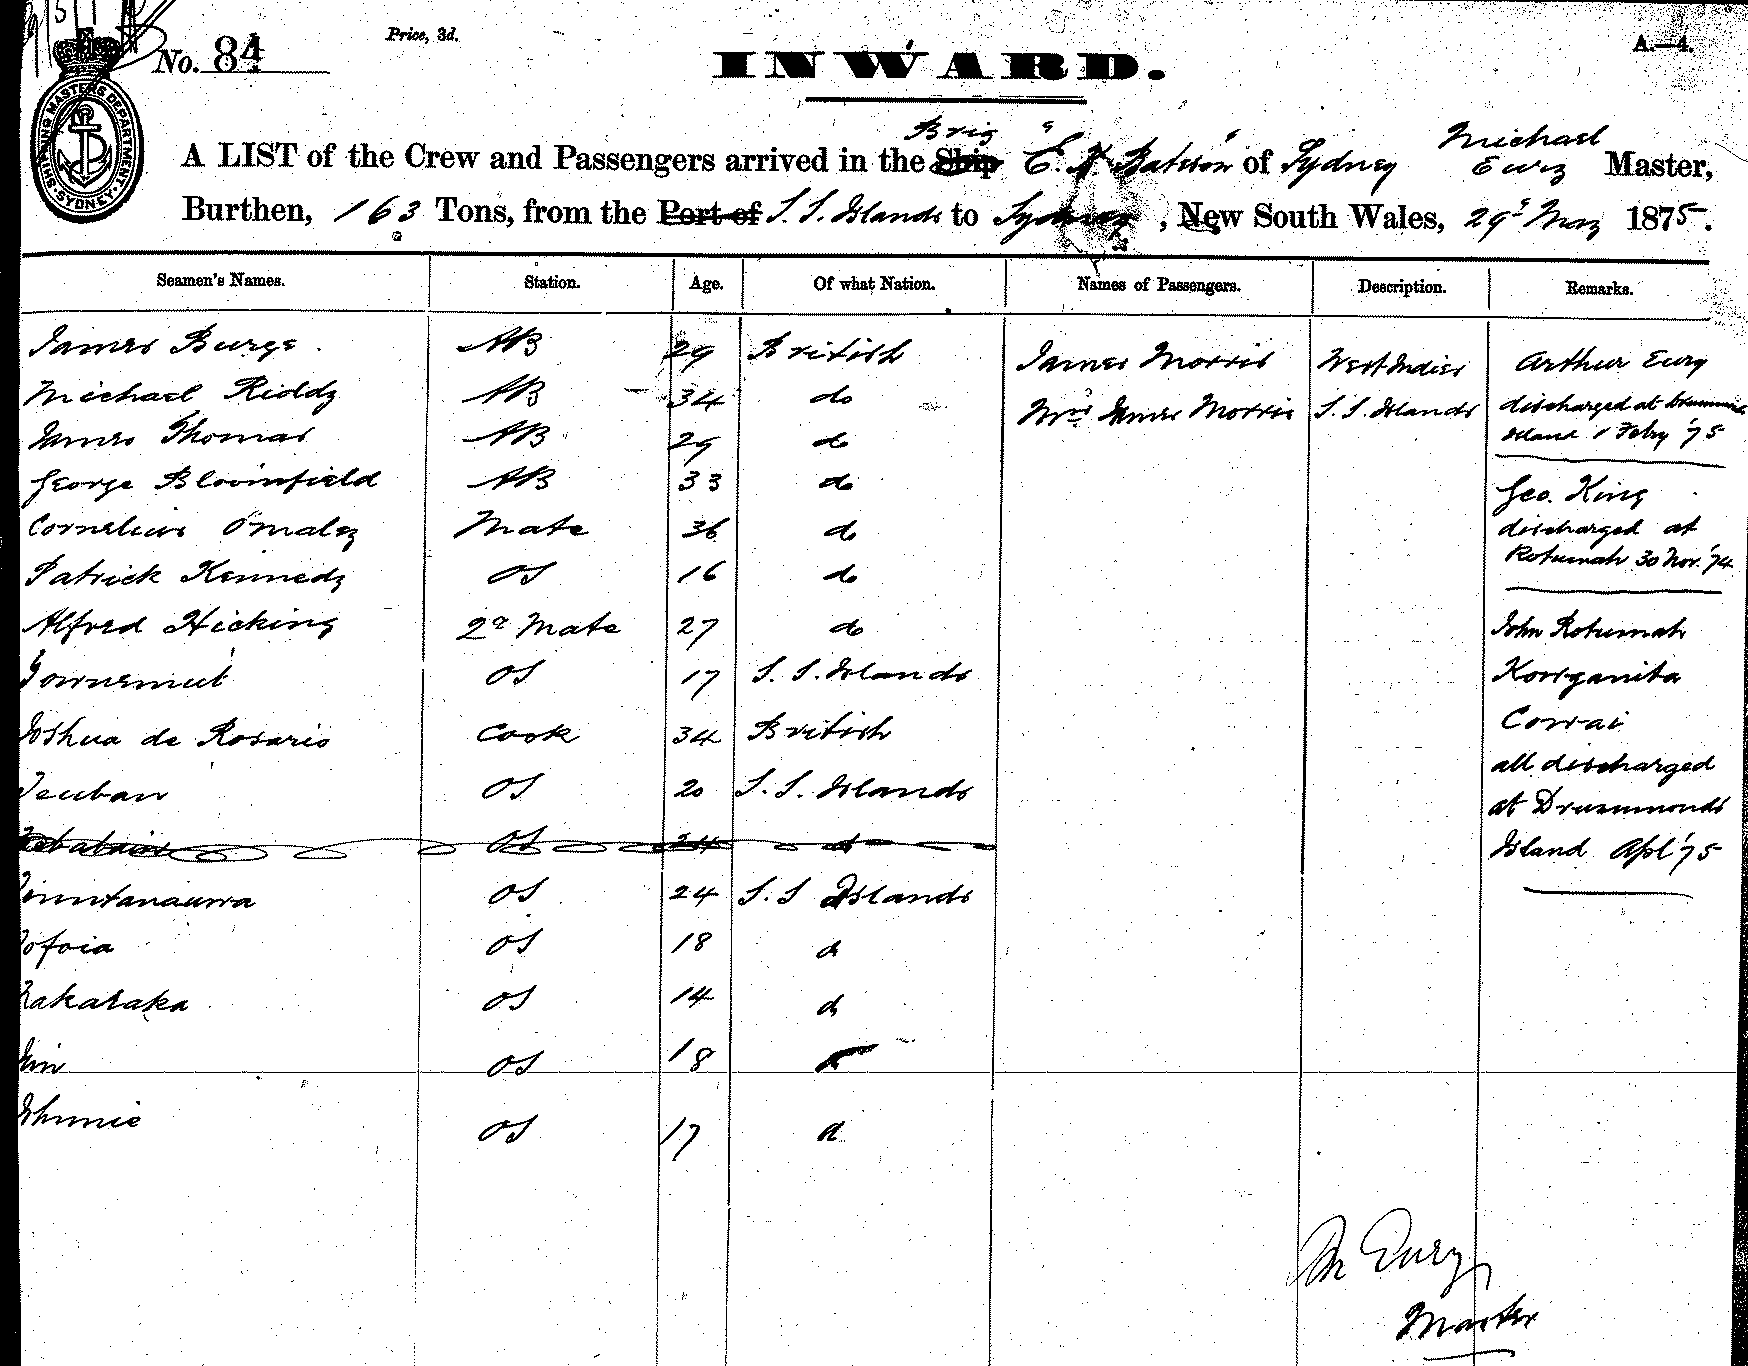 No. 84
Price, 3d.
A.—4.
INWARD.
SHIPPING MASTERS DEPARTMENT. SYDNEY.
Brig Michael
A LIST of the Crew and Passengers arrived in the Ship "E. K. Bateson" of Sydney Eury Master,
Burthen, 163 Tons, from the Port of S. S. Islands to Sydney, New South Wales, 29th May 1875.
Seamen's Names. Station. Age. Of what Nation. Names of Passengers. Description. Remarks.
James Burge AB 29 British James Morris West Indies Arthur Eury
Michael Riddy AB 34 do Mrs James Morris S. S. Islands discharged at
James Thomas AB 29 do Island 1 Feby '75
George Bloomfield AB 33 do Geo. King
Cornelius O'maley Mate 36 do discharged at
Patrick Kennedy OS 16 do Rotumah 30 Nov. '74
Alfred Hicking 2d Mate 27 do John Rotumah
OS 17 S. S. Islands Korganita
Joshua de Rosario Cook 34 British Corrai
Teuban OS 20 S. S. Islands all discharged
OS 24 d at Drummonds
Island Apl '75
OS 24 S. S Islands
OS 18 d
OS 14 d
Jim OS 18 d
Johnnie OS 17 d
M Eury
Master